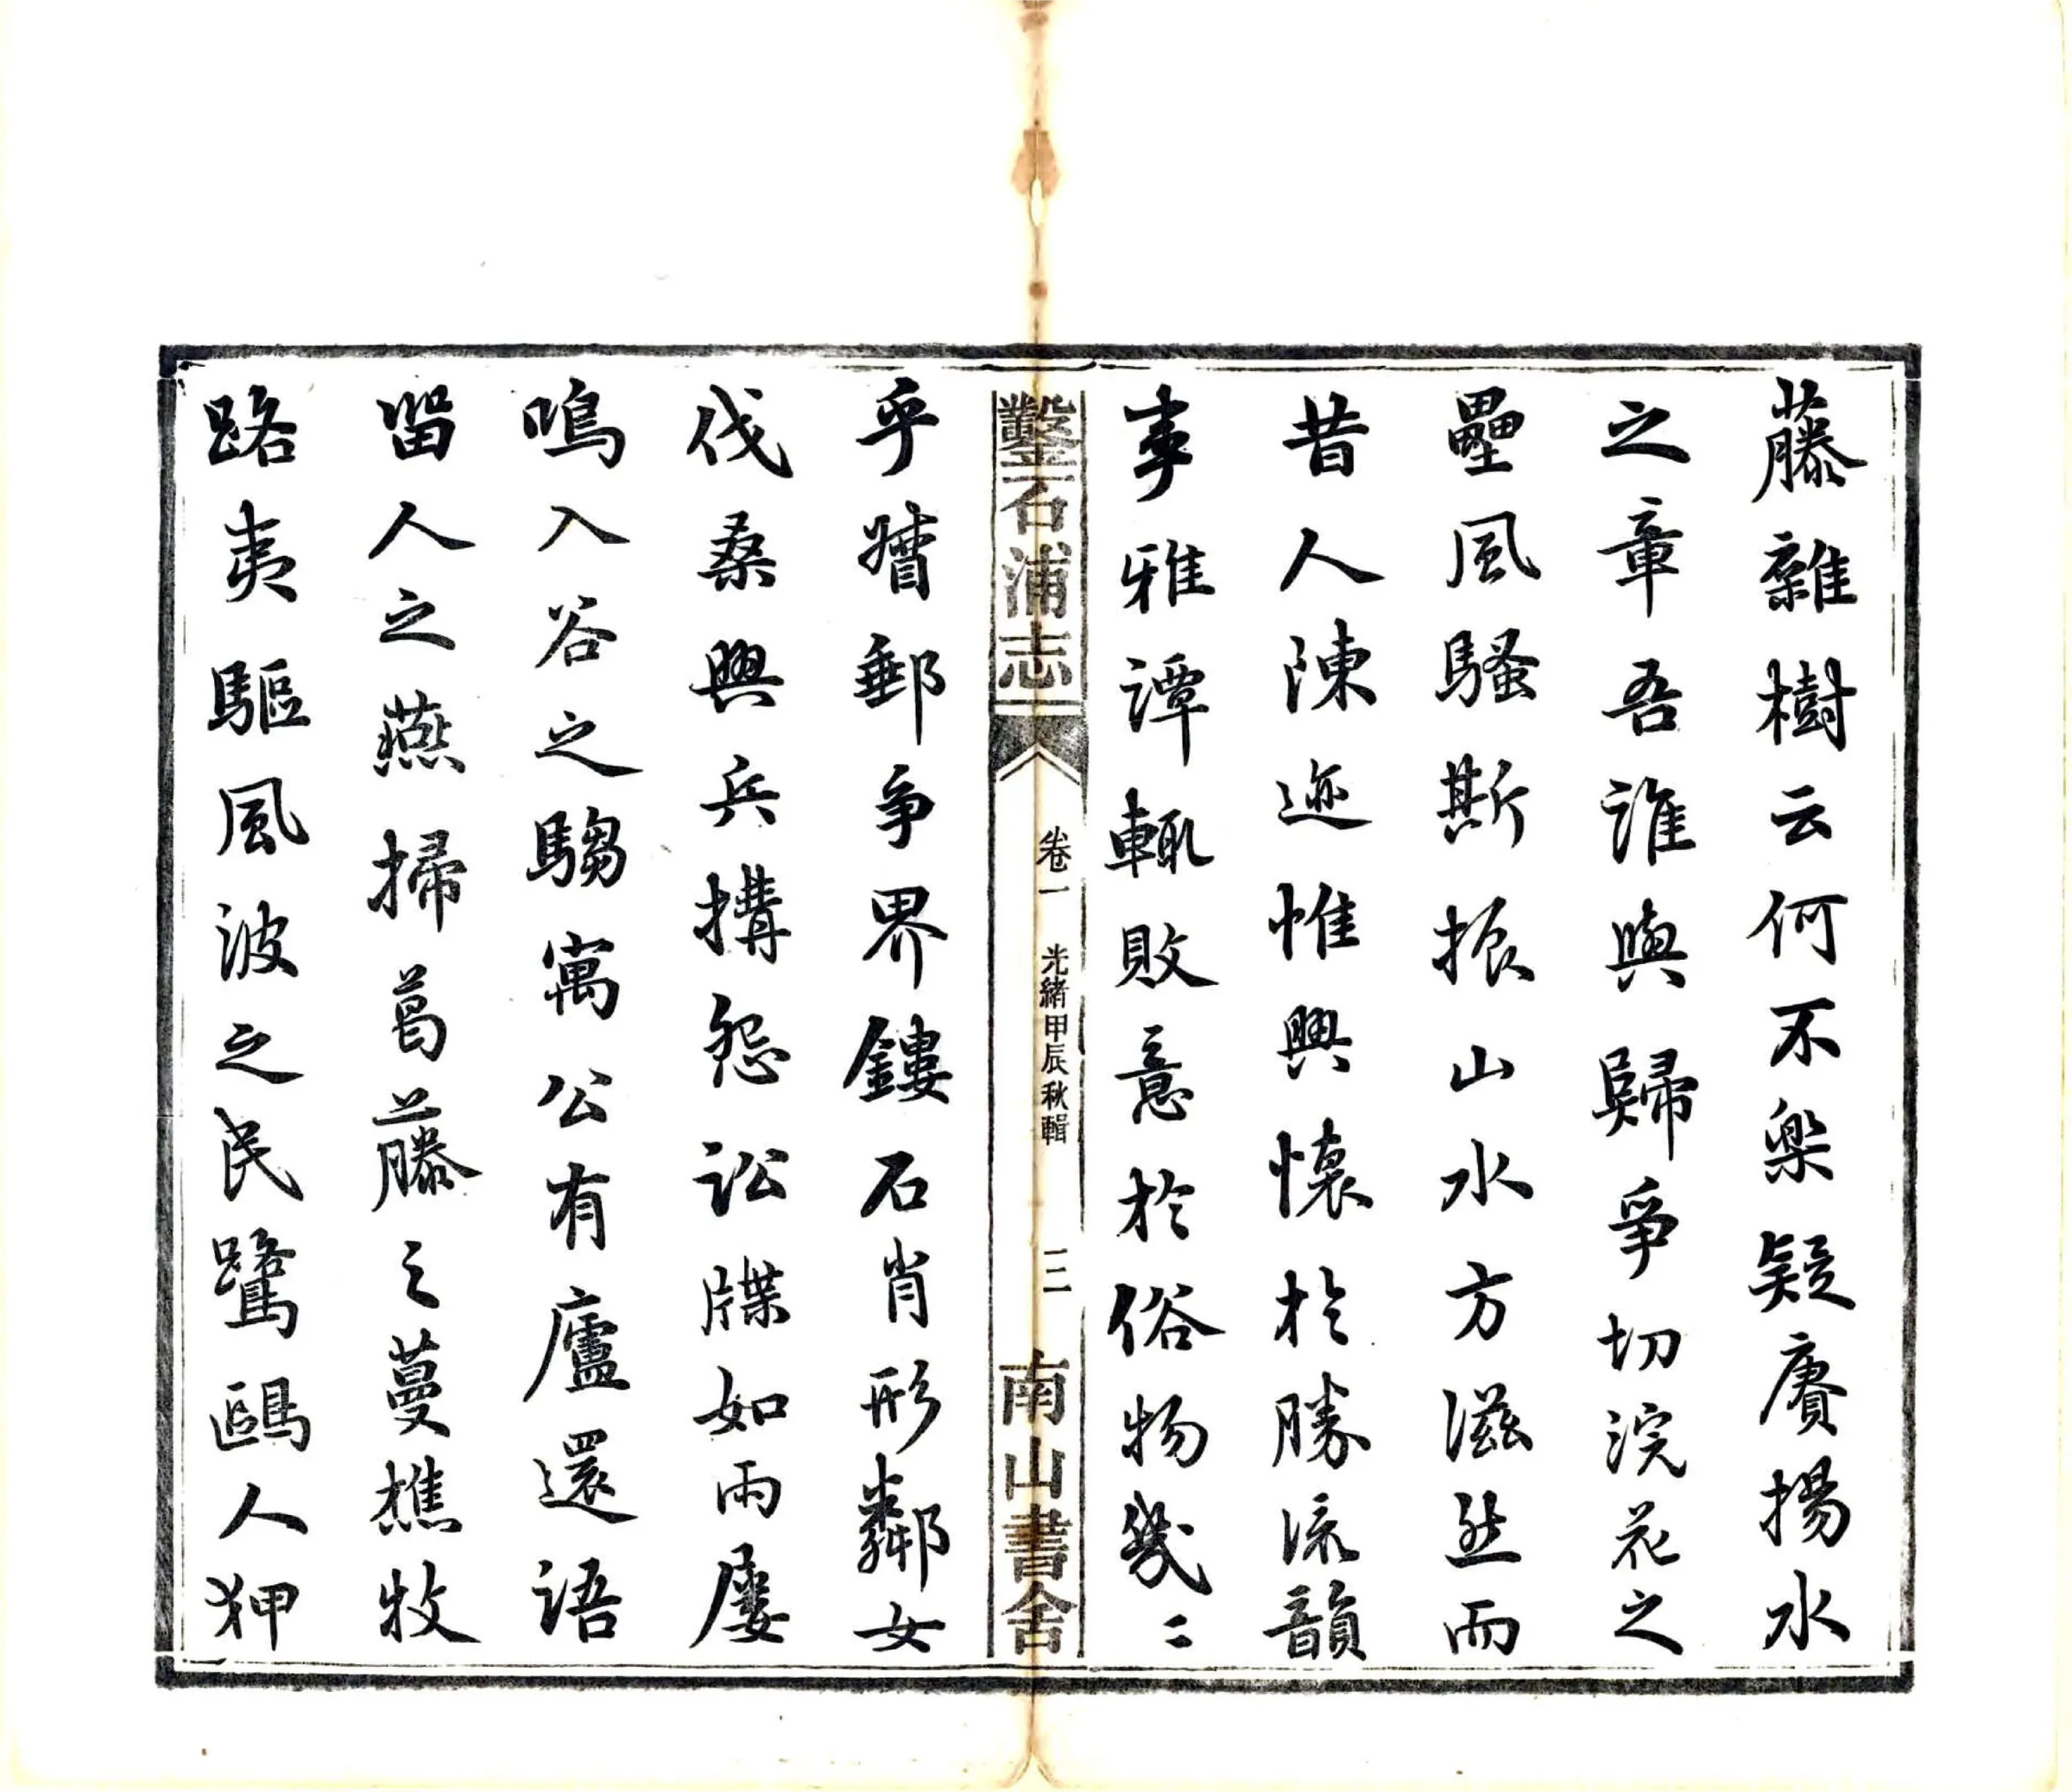 藤雜樹云何不樂疑賡揚水
之章吾誰與歸爭切浣花之
壘風騷斯振山水方滋然而
昔人陳迹惟興懷於勝流韻
事雅譚輒敗意於俗物幾二
鑿石浦志
卷一
光緒甲辰秋輯
三
南山書舍
乎嬻郵爭界鏤石肖形鄰女
伐桑興兵搆怨訟牒如雨屢
鳴入谷之騶寓公有廬還語
留人之燕掃葛藤之蔓樵牧
路夷驅風波之民鷺鷗人狎